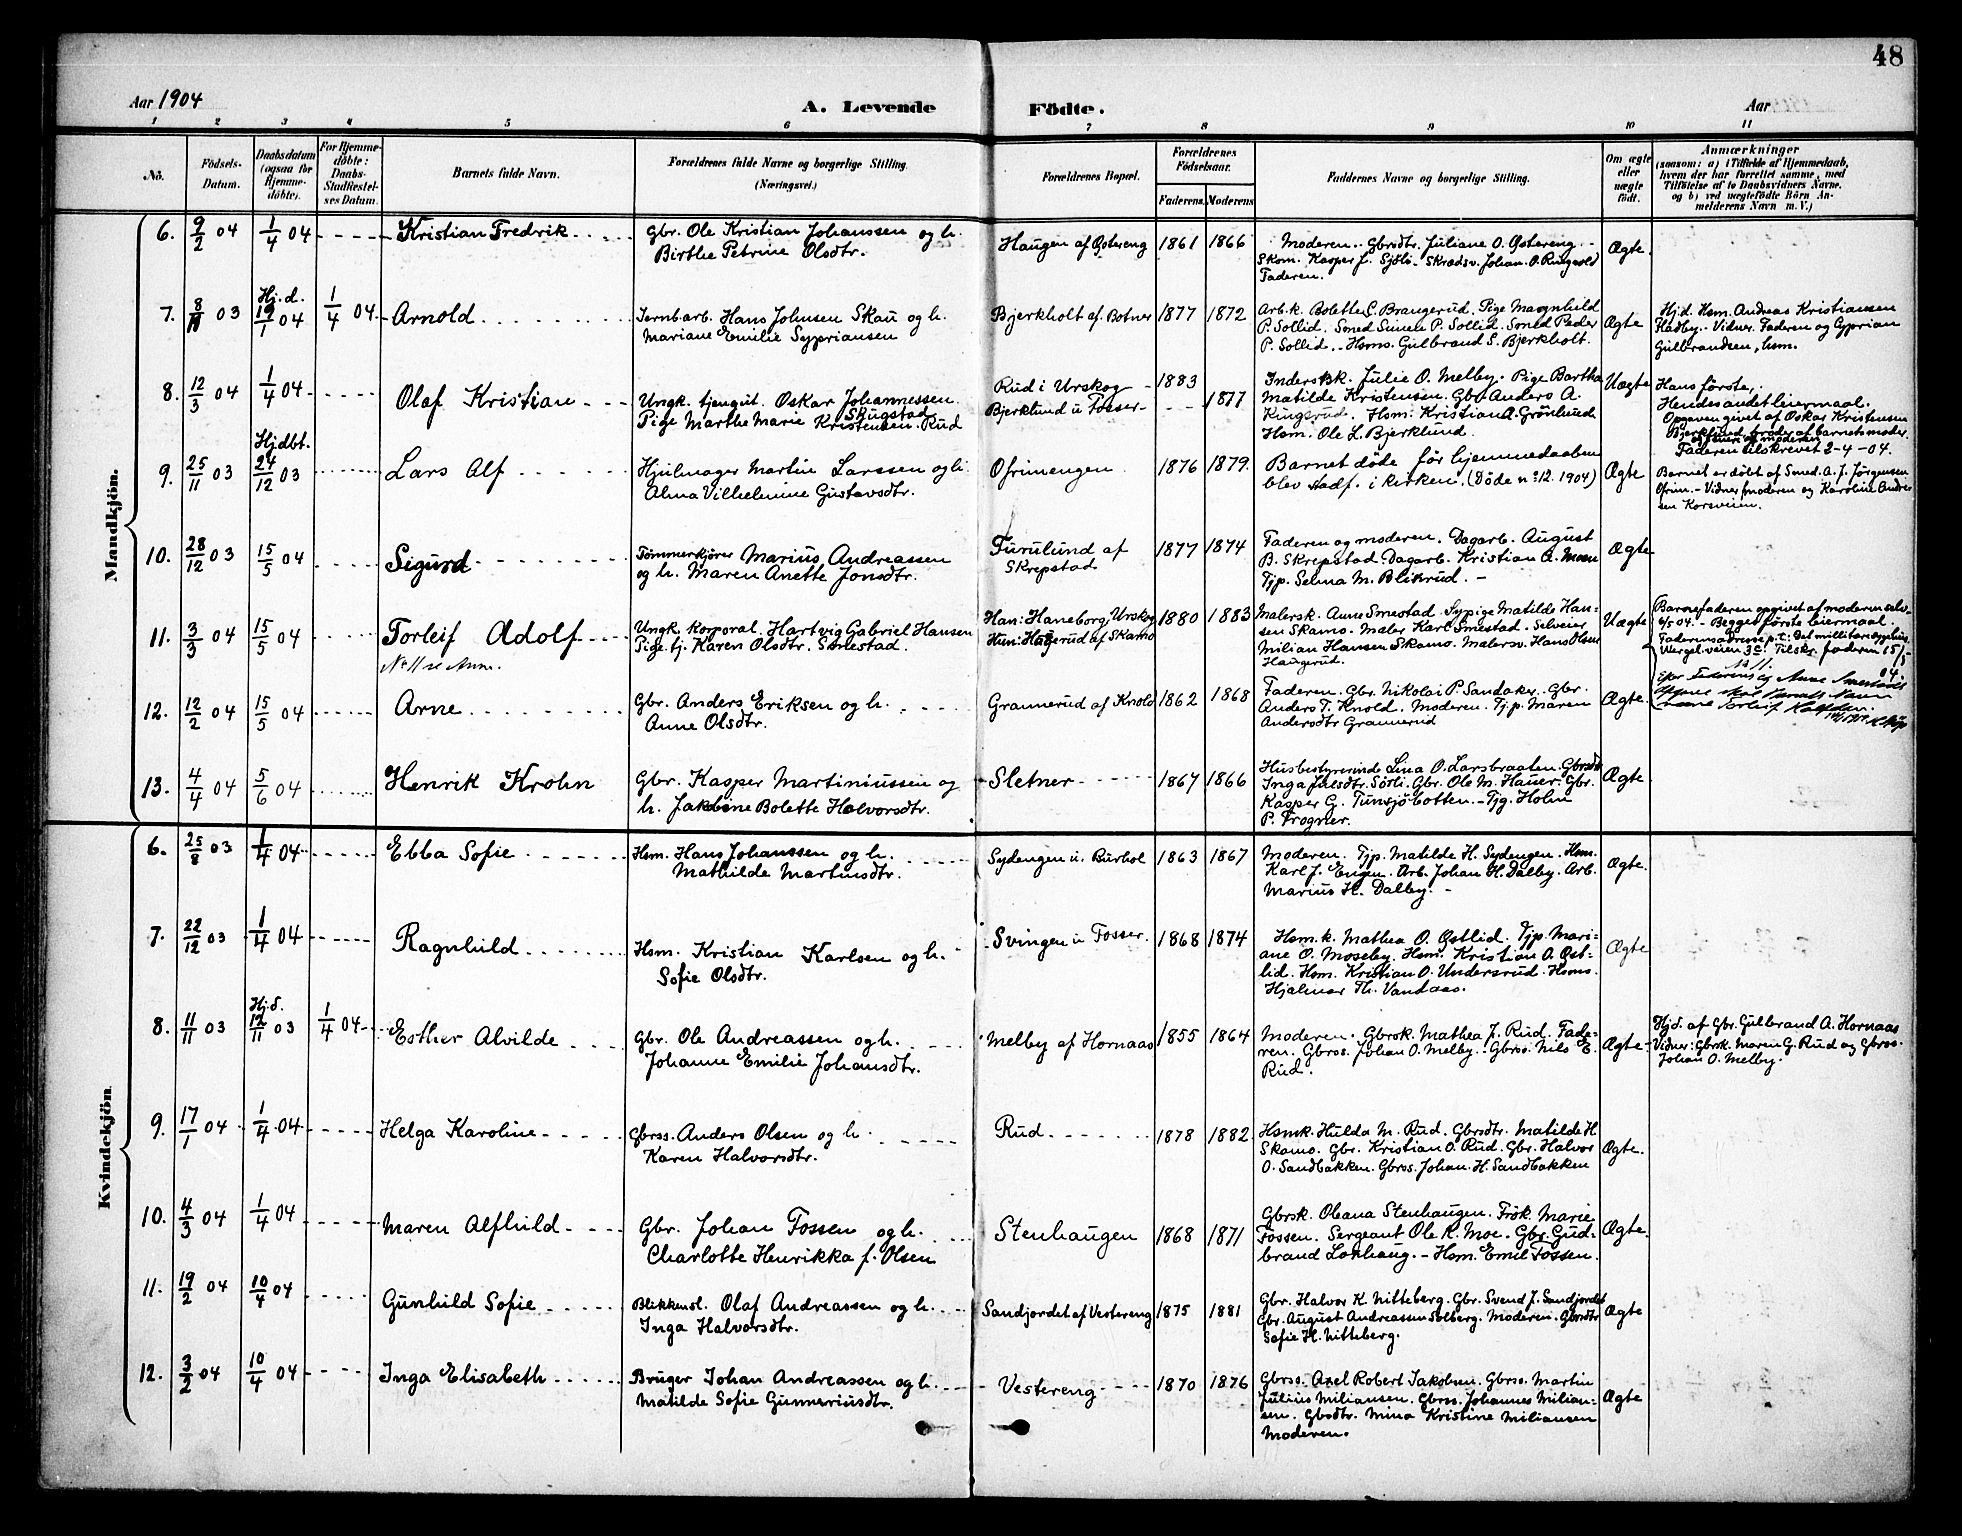 48
Aar 1904
A. Levende
Födte.
Aar
1 2 3 4 5 6 7 8 9 10 11
No.
Födsels-
Datum.
Daabsdatum
(ogsaa for
Hjemme-
döbte).
For Hjemme-
döbte:
Daabs-
Stadfæstel-
ses Datum.
Barnets fulde Navn.
Forældrenes fulde Navne og borgerlige Stilling.
(Næringsvei.)
Forældrenes Bopæl.
Forældrenes
Födselsaar.
Faderens. Moderens
Faddernes Navne og borgerlige Stilling.
Om ægte
eller
uægte
født.
Anmærkninger
(saasom: a) i Tilfælde af Hjemmedaab,
hvem der har forrettet samme, med
Tilföielse af to Daabsvidners Navne,
og b) ved uægtefödte Börn An-
melderens Navn m. V.)
Mandkjön.
6. 9/2 04 1/4 04 Kristian Fredrik
Gbr. Ole Kristian Johanssen og h.
Birthe Petrine Olsdtr.
Haugen af Østereng 1861 1866
Moderen. Gbrdtr. Juliane O. Østereng.
Skom. Kasper J. Sjöli. Skrædsv. Johan O. Ringvold
Faderen.
Ægte
7. 8/11 03 Hj.d. 19/1 04 1/4 04 Arnold
Jernbarb. Hans Johnsen Skau og h.
Mariane Emilie Sypriansen
Bjerkholt af Botner 1877 1872
Arb.k. Bolette S. Braugerud. Pige Magnhild
P. Sollid. Smed Simen P. Sollid. Smed Peder
P. Sollid. Hsms. Gulbrand S. Bjerkholt.
Ægte
Hj.d. Hsm. Andreas Kristiansen
Haaby. Vidner: Faderen og Cyprian
Gulbrandsen, hsm.
8. 12/3 04 1/4 04 Olaf Kristian
Ungk. tjengut. Oskar Johannessen Skugstad
Pige Marthe Marie Kristensen Rud
Rud i Urskog 1883
Bjerklund u Fosser 1877
Inderstk. Julie O. Melby. Pige Bartha
Matilde Kristensen. Gbr. Anders A.
Ringsrud. Hsm. Kristian A. Grönlund
Hsm. Ole L. Bjerklund.
Uægte
Hans første,
Hendes andet leiermaal.
Opgaven givet af Oskar Kristensen
Bjerklund, broder af barnets moder
og senere af moderen
Faderen tilskrevet 2-4-04.
9. 25/11 03 Hjdbt. 24/12 03 Lars Alf
Hjulmager Martin Larssen og h.
Alma Vilhelmine Gustavsdtr.
Ofrimengen 1876 1879.
Barnet døde før hjemmedaaben
blev stadf. i kirken. (Döde no: 12. 1904)
Ægte
Barnet er döbt af Smed. A. J. Jörgensen
Ofrim. - Vidner moderen og Karoline Andre-
sen Korsveien.
10. 28/12 03 15/5 04 Sigurd
Tømmerkjører Marius Andreassen
og h. Maren Anette Jonsdtr.
Furulund af
Skrepstad
1877 1874
Faderen og moderen. Dagarb. August
B. Skrepstad. Dagarb. Kristian A. Moen
Tjp. Selma M. Blikrud.
Ægte
11. 3/3 04 15/5 04 Torleif Adolf
No 11 se Anm.
Ungk. Korporal. Hartvig Gabriel Hansen
Pige. tj. Karen Olsdtr. Smestad.
Han: Haneborg, Urskog
Hun: Haugerud af Skamo
1880 1883
Malersk. Anne Smestad. Sypige Matilde Han-
sen Skamo. Maler Karl Smestad. Selveier
Milian Hansen Skamo. Malersv. Hans Olsen
Haugerud.
Uægte
Barnefaderen opgivet af moderen selv
6/5 04. - Begges første leiermaal.
Faderens adresse p.t.: Det millitære sygehus,
Wergel.veien 3c. Tilskr. faderen 15/5 04.
No 11.
12. 12/2 04 15/5 04 Arne
Gbr. Anders Eriksen og h.
Anne Olsdtr.
Grannerud af Knold 1862 1868
Faderen. Gbr. Nikolai P. Sandaker. Gbr.
Anders T. Knold. Moderen. Tj.p. Maren
Andersdtr Grannerud
Ægte
13. 4/4 04 5/6 04 Henrik Krohn
Gbr. Kasper Martiniussen og
h. Jakobine Bolette Halvorsdtr.
Sletner 1867 1866
Husbestyrerinde Lina O. Larsbraaten. Gbrsdtr
Inga Julsdtr. Sörli. Gbr. Ole M. Hauer. Gbr.
Kasper G. Tunsjöbotten. - Tjg. Holm
P. Frogner.
Ægte
Kvindekjön.
6. 25/8 03 1/4 04 Ebba Sofie
Hsm. Hans Johanssen og h.
Mathilde Martinsdtr.
Sydengen u. Burhol 1863 1867
Moderen. Tjp. Matilde H. Sydengen. Hsm.
Karl J. Engen. Arb. Johan H. Dalby. Arb.
Marius H. Dalby.
Ægte.
7. 22/12 03 1/4 04 Ragnhild
Hsm. Kristian Karlsen og h.
Sofie Olsdtr.
Svingen u Fosser. 1868 1874
Hsm.k. Mathea O. Østlid. Tjp. Mari-
ane O. Moseby. Hsm. Kristian O. Øst-
lid. Hsm. Kristian O. Undersrud. Hsms.
Hjalmar Th. Vandaas.
Ægte
8. 11/11 03 Hj.d. 12/11 03 1/4 04 Esther Alvilde
Gbr. Ole Andreassen og h.
Johanne Emilie Johansdtr.
Melby af Hornaas 1855 1864
Moderen. Gbrsk. Mathea J. Rud. Fade-
ren. Gbrss. Johan O. Melby. Gbrss. Nils E.
Rud.
Ægte
Hj.d. af Gbr. Gulbrand A. Hornaas
Vidner: Gbrsk. Maren G. Rud og Gbrss.
Johan O. Melby.
9. 17/1 04 1/4 04 Helga Karoline
Gbrss. Anders Olsen og h.
Karen Halvorsdtr.
Rud 1878 1882
Hsmk. Hulda M. Rud. Gbrsdtr. Matilde H
Skamo. Gbr. Kristian O. Rud. Gbr. Halvor
O. Sandbakken. Gbrss. Johan H. Sandbakken
Ægte.
10. 4/3 04 1/4 04 Maren Alfhild
Gbr. Johan Fossen og h.
Charlotte Henrikka f. Olsen
Stenhaugen 1868 1871
Gbrsk. Oleana Stenhaugen. Frök. Marie
Fossen. Sergeant Ole K. Moe. Gbr. Gud-
brand Lokhaug. - Hsm. Emil Fossen.
Ægte.
11. 19/2 04 10/4 04 Gunhild Sofie
Blikkensl. Olaf Andreassen og h.
Inga Halvorsdtr.
Sandjordet af Vestereng 1875 1881
Gbr. Halvor K. Nitteberg. Gbr. Svend J. Sandjordet
Gbr. August Andreassen Solberg. Moderen. Gbrsdtr
Sofie H. Nitteberg.
Ægte
12. 3/2 04 10/4 04 Inga Elisabeth
Bruger Johan Andreassen og h.
Matilde Sofie Gunneriusdtr.
Vestereng 1870 1876
Gbrss. Axel Robert Jakobsen. Gbrss. Martin
Julius Miliansen. Gbrss. Johannes Milian-
sen. Gbsdtr. Mina Kristine Miliansen
Moderen.
Ægte